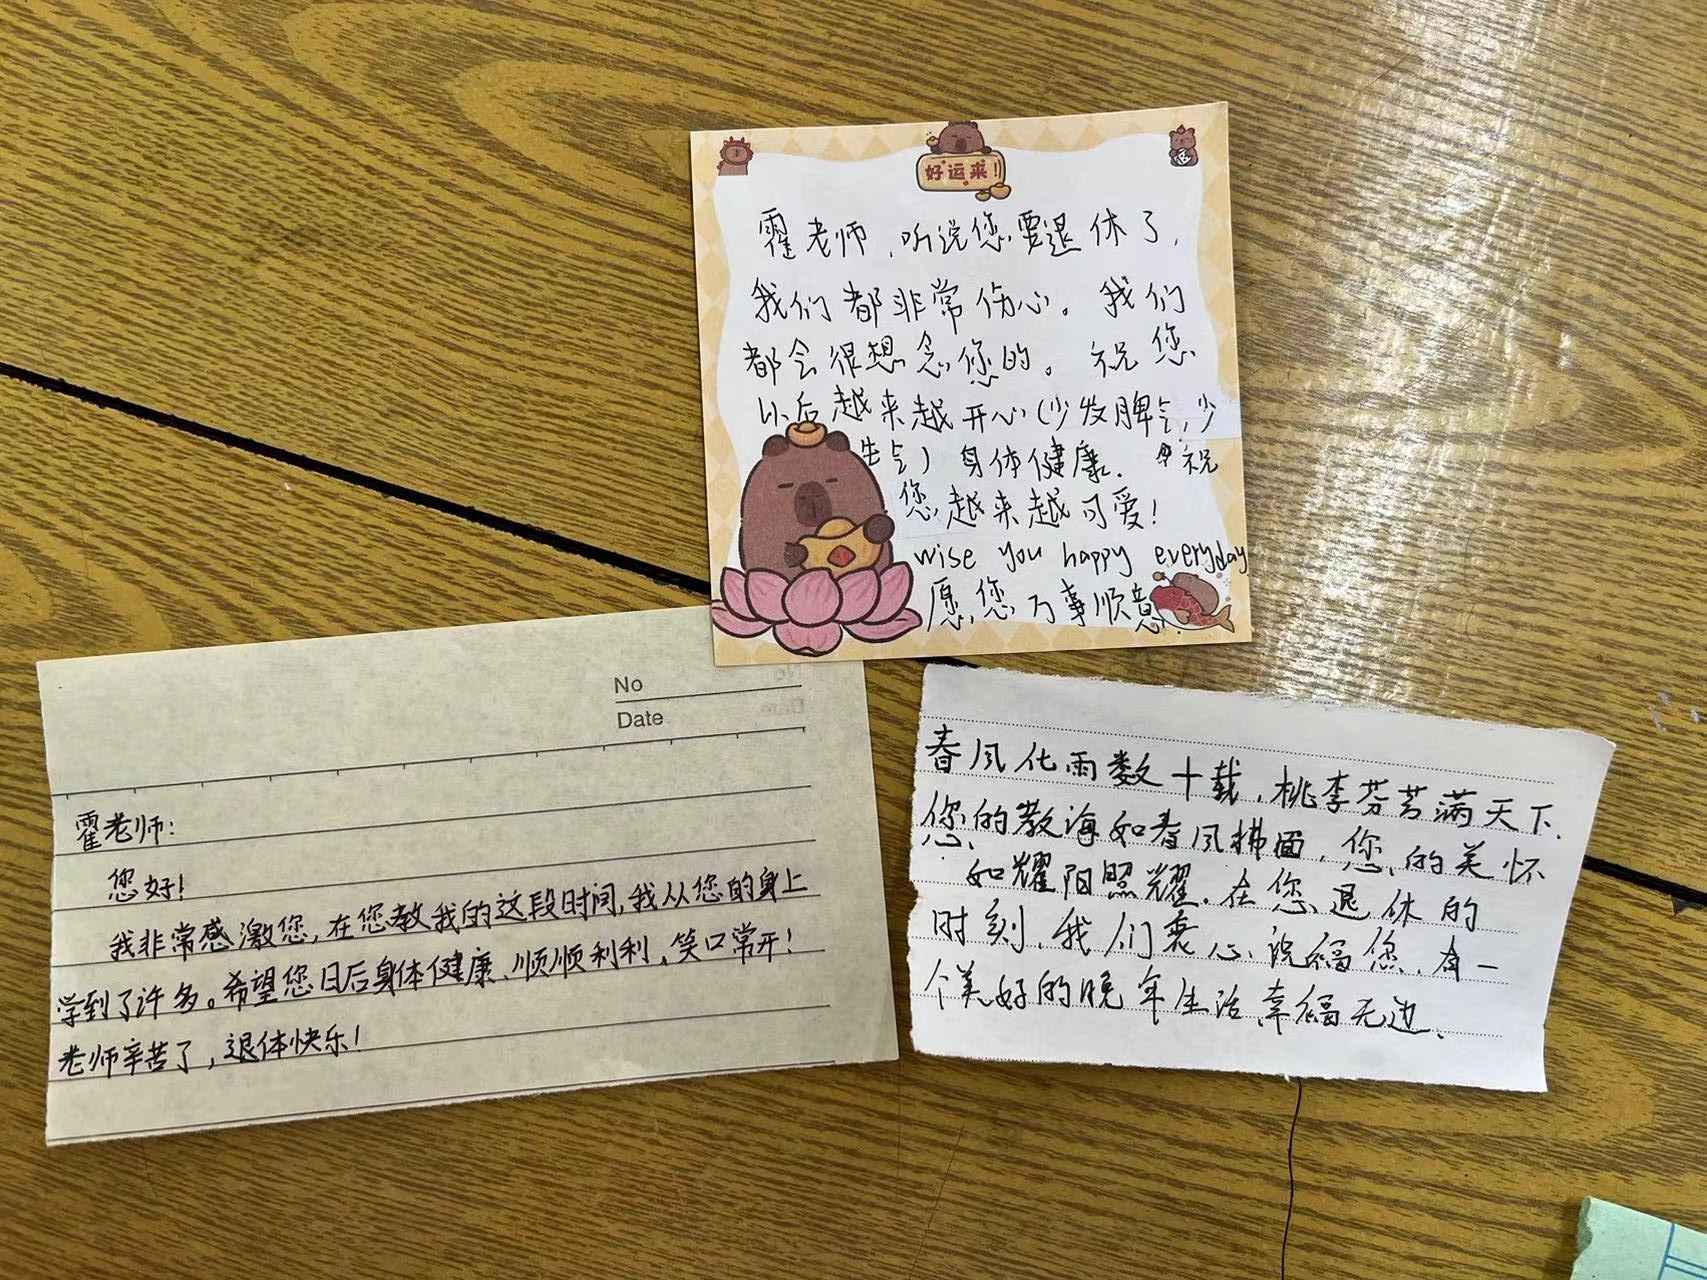 好运来!
霍老师,听说您要退休了,
我们都非常伤心。我们
都会很想念您的。祝您
以后越来越开心(少发脾气,少
生气)身体健康.祝
您越来越可爱!
wise you happy everyday
愿您万事顺意.
No
Date
霍老师:
您好!
我非常感激您,在您教我的这段时间,我从您的身上
学到了许多。希望您日后身体健康、顺顺利利,笑口常开!
老师辛苦了,退体快乐!
春风化雨数十载,桃李芬芳满天下.
您的教海如春风拂面,您的关怀
如耀阳照耀.在您退休的
时刻,我们衷心祝福您,有一
个美好的晚年生活,幸福无边.